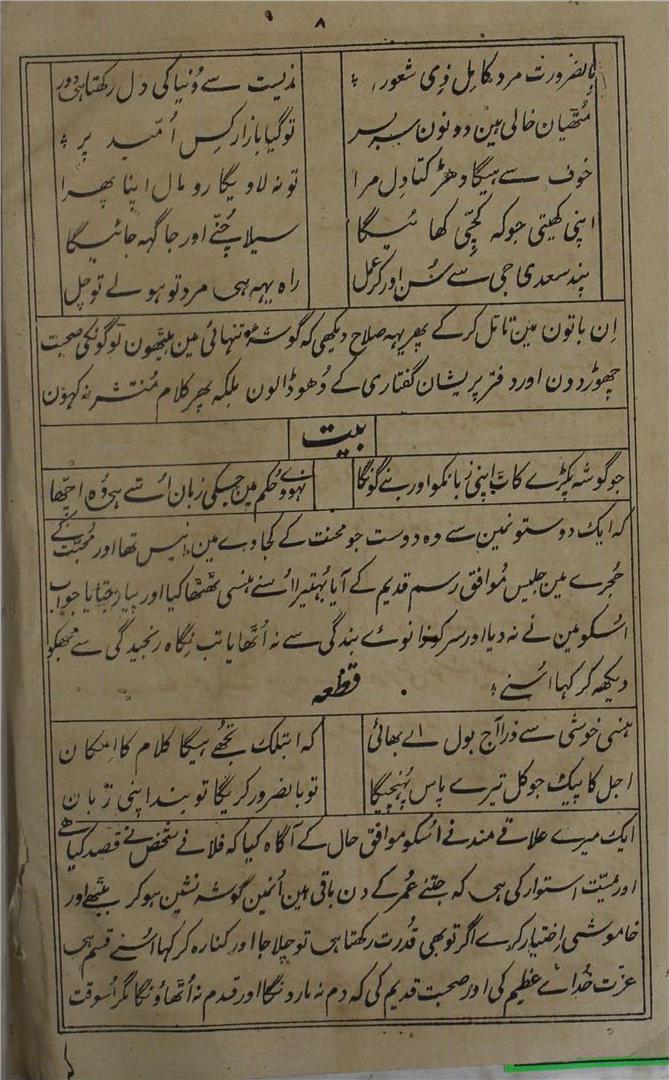 ۸
بالضرورت مرد کامل ذی شعور نیست سے دُنیا کی دل رکھتا ہی دور
مُٹھیان خالی ہین دونون سربسر تو گیا بازار کس اُمید پر
خوف سے ہیگا دھڑکتا دل مرا تو نہ لاویگا رومال اپنا پھرا
اپنی کھیتی جو کہ کچّی کھائیگا سیلا چُنّے اور جاگہہ جائیگا
پند سعدی جی سے سُن اور کر عمل راہ یہہ ہی مرد تو ہولے تو چل
اِن باتون مین تامّل کرکے پھر یہہ صلاح دیکھی کہ گوشۂ تنہائی مین بیٹھون لوگونکی صحبت
چھوڑ دون اور دفتر پریشان گفتاری کے دُھو ڈالون بلکہ پھر کلام مُنتشر نہ کہون
بیت
جو گوشہ پکڑے کاٹ اپنی زبانکو اور بنے گونگا نہووے حُکم مین جسکی زبان اُسّے ہی وُہ اچّھا
کہ ایک دوستونمین سے وہ دوست جو محنت کے کجاوے مین انیس تھا اور محبّت کے
حُجرے مین جلیس مُوافق رسم قدیم کے آیا بُہتیرا اُسنے ہنسی ٹھٹھا کیا اور پیار جتایا جواب
اُسکو مین نے نہ دیا اور سر کو زانوے بندگی سے نہ اُٹھایا تب نگاہ رنجیدگی سے مجھکو
دیکھ کر کہا اُسنے
قطعہ
ہنسی خوشی سے ذرا آج بول اے بھائی کہ ابتلک تجھے ہیگا کلام کا اِمکان
اجل کا پیک جو کل تیرے پاس پہُنچیگا تو بالضرور کریگا تو بند اپنی زبان
ایک میرے علاقے مند نے اُسکو موافق حال کے آگاہ کیا کہ فلانے شخص نے قصد کیا ہے
اور نیّت استوار کی ہی کہ جتنے عُمر کے دن باقی ہین اُنمین گوشہ نشین ہوکر بیٹھے اور
خاموشی اِختیار کرے اگر تو بھی قُدرت رکھتا ہی تو چلا جا اور کنارہ کر کہا اُسنے قسم ہی
عزّت خُداے عظیم کی اور صحبت قدیم کی کہ دم نہ مارونگا اور قدم نہ اُٹھاؤنگا مگر اُسوقت